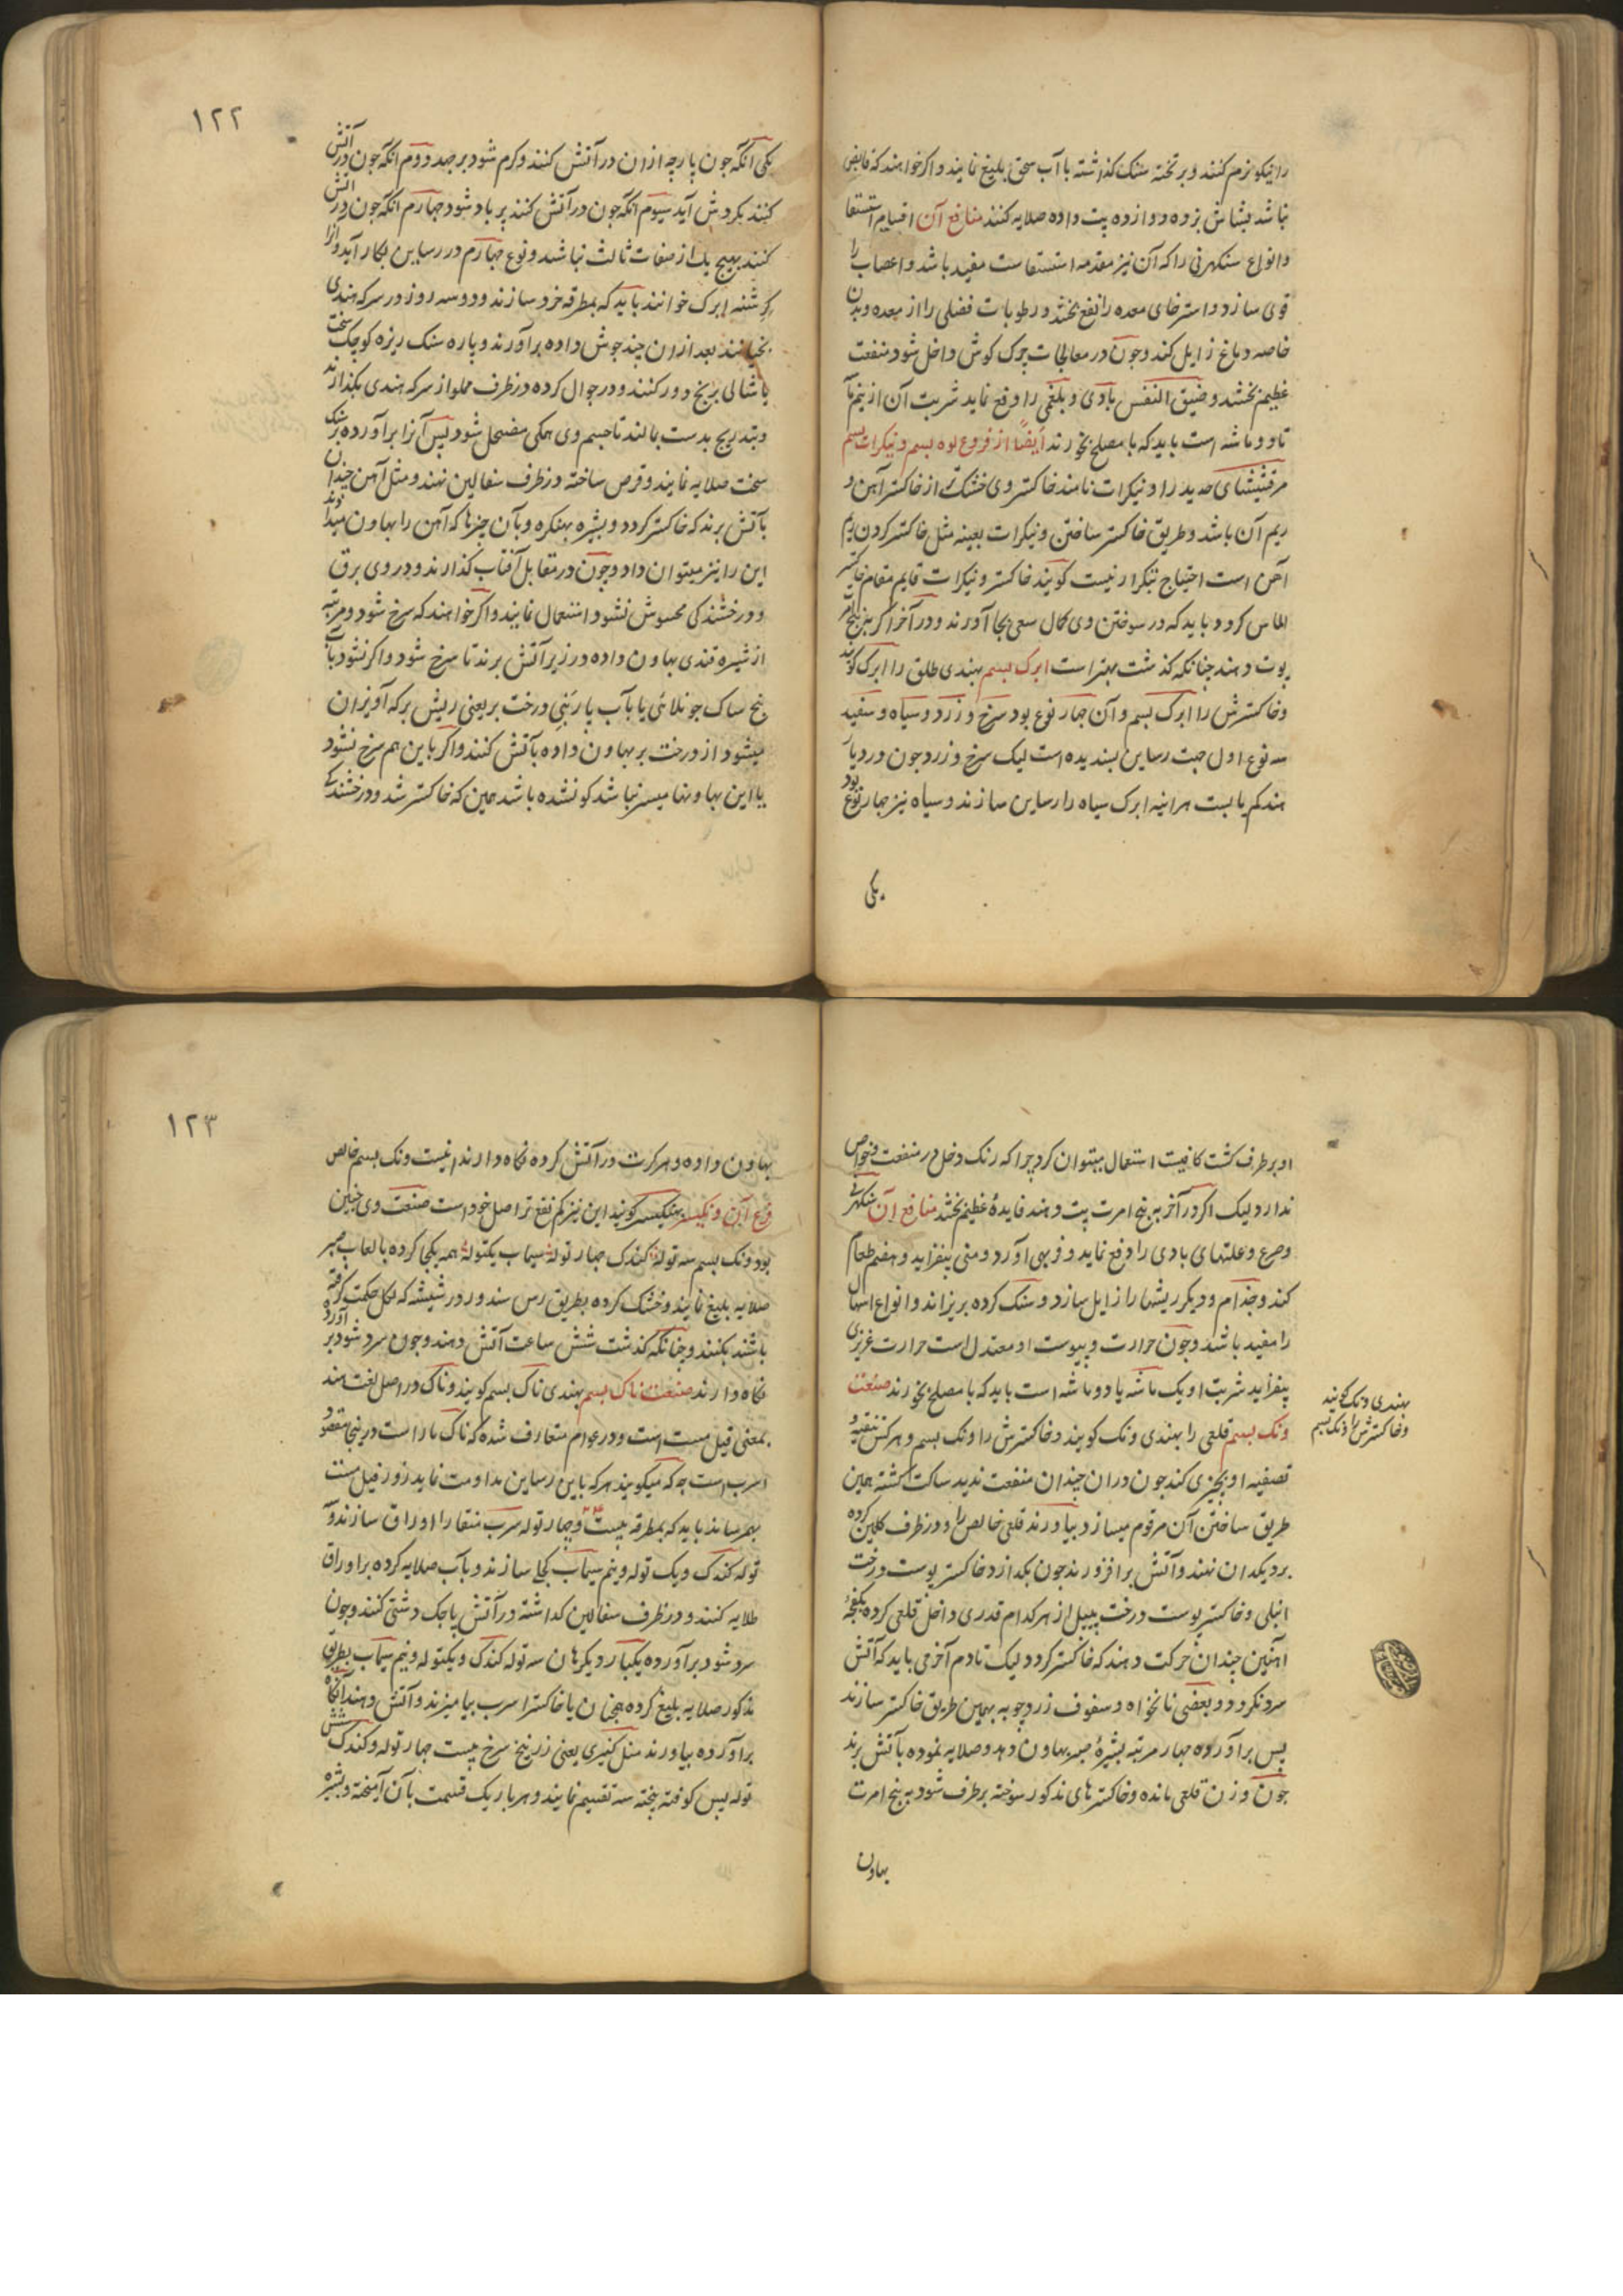 را نیکو نرم کنند و بر تخته سنک کذاشته با آب سحق بلیغ نمایند و اکر خواهند که قابض
نباشد بشاش بزوده دوازده پت داده صلایه کنند منافع آن اقسام استسقا
وانواع سنکهرنی را که آن نیز مقدمه استسقاست مفید باشد و اعصاب را
قوی سازد و استرخای معده را نفع بخشد و رطوبات فضلی را از معده وبدن
خاصه دماغ زایل کند وچون در معالجات چرک کوش داخل شود منفعت
عظیم بخشد و ضیق النفس بادی و بلغمی را دفع نماید شربت آن از نیم ماشه
تا دو ماشه است باید که با مصلح بخورند ایضاً از فروع لوه بسم ونیکرات بسم
مرقشیشای حدید را ونیکرات نامند خاکستر وی خشک تر از خاکستر آهن و
ریم آن باشد وطریق خاکستر ساختن ونیکرات بعینه مثل خاکستر کردن ریم
آهن است احتیاج تکرار نیست کویند خاکستر ونیکرات قایم مقام خاکستر
الماس کردد باید که در سوختن وی کمال سعی بجا آورند ودر آخر اکر بنرپنج امرت
پوت دهند چنانکه کذشت بهتر است ابرک بسم بهندی طلق را ابرک کویند
وخاکسترش را ابرک بسم وآن چهار نوع بود سرخ و زرد و سیاه و سفید
سه نوع اول جهت رساین پسندیده است لیک سرخ و زرد چون در دیار
هند کم یابست هراینه ابرک سیاه را رساین سازند وسیاه نیز چهار نوع بود
یکی
۱۲۲
یکی آنکه چون پارچه ازان در آتش کنند وکرم شود برجهد دوم آنکه چون در آتش
کنند بکردش آید سیوم آنکه چون در آتش کنند پر باد شود چهارم آنکه چون در آتش
کنند بهیچ یک از صفات ثالث نباشد ونوع چهارم در رساین بکار آید واورا
کرشنه ابرک خوانند باید که بمطرقه خرد سازند ودو سه روز در سرکه هندی
بخیسانند بعد ازان چند جوش داده برآورند و پاره سنک ریزه کوچک سخت
با شالی برنج دور کنند ودر جوال کرده در ظرف مملو از سرکه هندی بکذارند
وبتدریج بدست بمالند تا جسم وی همکی مضمحل شود پس آنرا برآورده بر سنک
سخت صلایه نمایند وقرص ساخته در ظرف سفالین نهند ومثل آهن چندان
بآتش برند که خاکستر کردد وبشیره بهنکره وبآن چیزها که آهن را بهاون میدهند
این را نیز میتوان داد وچون در مقابل آفتاب کذارند ودر وی برق
ودرخشندکی محسوش نشود استعمال نمایند واکر خواهند که سرخ شود دو مرتبه
از شیره قندی بهاون داده در زیر آتش برند تا سرخ شود واکر نشود بآب
بیخ ساک چونلائی یا بآب پارتنبی درخت بر یعنی ریش بر که آویزان
میشود از درخت بر بهاون داده بآتش کنند واکر باین هم سرخ نشود
یا این بهاونها میسر نباشد کو نشده باشد همین که خاکستر شد ودرخشندکی
او برطرف کشت کافیست استعمال میتوان کرد چرا که رنک دخل در منفعت وخواص
ندارد لیک اکر در آخر به پنج امرت پت دهند فایدهٔ عظیم بخشد منافع آن سنکهرنی
وصرع وعلتهای بادی را دفع نماید وفربهی آورد ومنی بیفزاید وهضم طعام
کند وجذام ودیکر ریشها را زایل سازد وسنک کرده بریزاند وانواع اسهال
را مفید باشد وچون حرارت ویبوست او معتدل است حرارت غریزی
بیفزاید شربت او یک ماشه یا دو ماشه است باید که با مصلح بخورند صنعت
ونک بسم قلعی را بهندی ونک کویند وخاکسترش را ونک بسم وهرکس تنقیه و
تصفیه او بچیزی کند چون دران چندان منفعت ندید ساکت کشته همین
طریق ساختن آن مرقوم میسازد بیاورند قلعی خالص را ودر ظرف کلین کرده
بر دیکدان نهند وآتش برافزورند چون بکدازد خاکستر پوست درخت
انبلی وخاکستر پوست درخت پیپل از هر کدام قدری داخل قلعی کرده بکفچهٔ
آهنین چندان حرکت دهند که خاکستر کردد لیک تا دم آخر می باید که آتش
سرد نکردد وبعضی نانخواه وسفوف زردچوبه بهمین طریق خاکستر سازند
پس برآورده چهار مرتبه بشیرهٔ صبر بهاون دهد وصلایه نموده بآتش برند
چون وزن قلعی مانده وخاکسترهای مذکور سوخته برطرف شود به پنج امرت
بهاون
بهندی ونک کویند
وخاکسترش را ونک بسم
۱۲۳
بهاون داده وهر کرت در آتش کرده نکاه دارند اینست ونک بسم خالص
فرع آن ونکیسر بهنکیسر کویند این نیز کم نفع تر از اصل خود است صنعت وی چنین
بود ونک بسم سه توله کندک چهار توله سیماب یکتوله همه یکجا کرده با لعاب صبر
صلایه بلیغ نمایند وخشک کرده بطریق رس سندور در شیشه که بکل حکمت کرفته
باشند بکنند وچنانکه کذشت شش ساعت آتش دهند وچون سرد شود برآورده
نکاه دارند صنعت ناک بسم بهندی ناک بسم کویند وناک در اصل لغت هند
بمعنی فیل مست است ودر عوام متعارف شده که ناک مار است در اینجا مقصود
اسرب است چه که میکویند هر که باین رساین مداومت نماید زور فیل مست
بهم رساند باید که بمطرقه بیست وچهار توله سرب منقا را اوراق سازند و
توله کندک ویک توله ونیم سیماب کجلی سازند وبآب صلایه کرده بر اوراق
طلایه کنند ودر ظرف سفالین کداشته در آتش پاچک دشتی کنند وچون
سرد شود برآورده یکبار دیکر همان سه توله کندک ویکتوله ونیم سیماب بطریق
مذکور صلایه بلیغ کرده همچنان با خاکستر اسرب بیامیزند وآتش دهند آنکاه
برآورده بیاورند منل کنیری یعنی زرنیخ سرخ بیست چهار توله وکندک شش
توله پس کوفته بیخته سه تقسیم نمایند وهر بار یک قسمت بآن آمیخته وبشیر